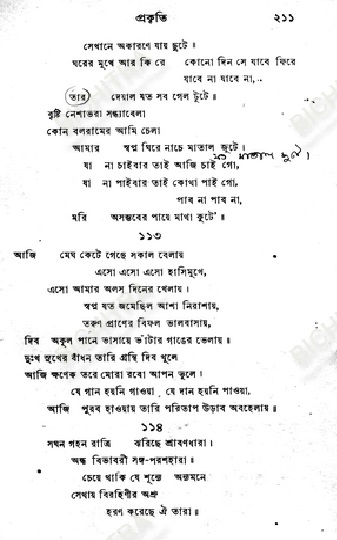 প্রকৃতি ২১১
সেখানে অকারণে যায় ছুটে ।
ঘরের মুখে আর কি রে কোনো দিন সে যাবে ফিরে
যাবে না যাবে না,
তার দেয়াল যত সব গেল টুটে ।
বৃষ্টি নেশাভরা সন্ধ্যাবেলা
কোন বলরামের আমি চেলা
আমার স্বপ্ন ঘিরে নাচে মাতাল জুটে ।
যা না চাইবার তাই আজি চাই গো,
যা না পাইবার তাই কোথা পাই গো,
পাব না পাব না,
মরি অসম্ভবের পায়ে মাথা কুটে ॥
১১৩
আজি মেঘ কেটে গেছে সকাল বেলায়
এসো এসো এসো হাসিমুখে,
এসো আমার অলস দিনের খেলায় ।
স্বপ্ন যত জমেছিল আশা নিরাশায়,
তরুণ প্রাণের বিফল ভালবাসায়,
দিব অকূল পানে ভাসায়ে ভাঁটার গাঙের ভেলায় ।
দুঃখ সুখের বাঁধন তারি গ্রন্থি দিব খুলে
আজি ক্ষণেক তরে মোরা রবো আপন ভুলে ।
যে গান হয়নি গাওয়া, যে দান হয়নি পাওয়া,
আজি পূরব হাওয়ায় তারি পরিতাপ উড়াব অবহেলায় ।
১১৪
সঘন গহন রাত্রি ঝরিছে শ্রাবণধারা ।
অন্ধ বিভাবরী সঙ্গ-পরশহারা ।
চেয়ে থাকি যে শূন্যে অন্যমনে
সেথায় বিরহিণীর অশ্রু
হরণ করেছে ঐ তারা ॥